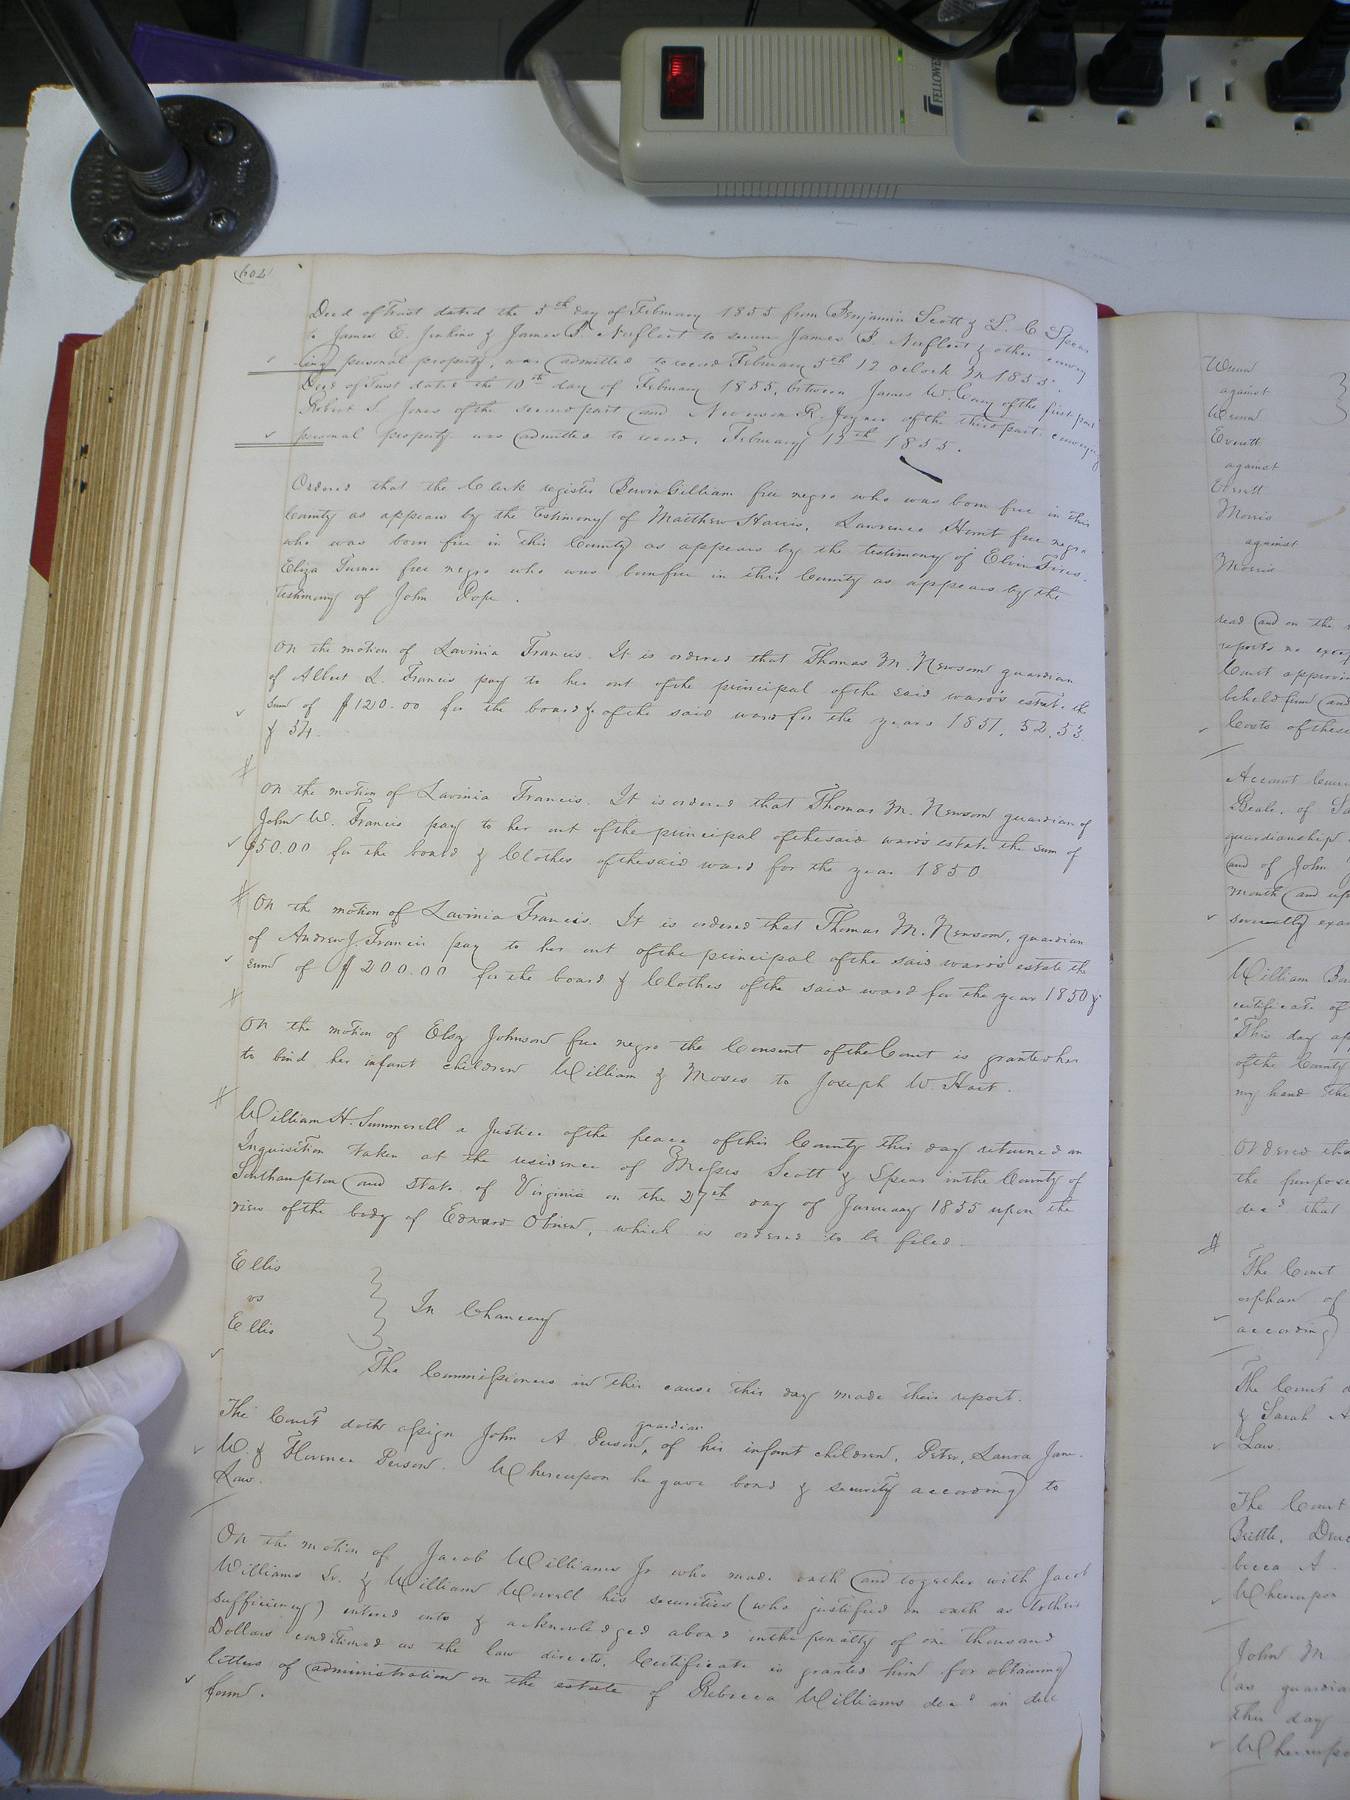 FELLOWES
604
Deed of Trust dated the 5th day of February 1855 from Benjamin Scott & S. C Spear
to James E. Jenkins & James B. Norfleet to secure James B. Norfleet & other convey
ing personal property, was admitted to record February 5th 12 oclock M 1855.
Deed of Trust dated the 10th day of February 1855, between James W. Cary of the first part
Robert S. Jones of the second part and Newsom R. Joyner of the third part conveying
personal property was admitted to record. February 12th 1855.
Ordered that the Clerk register Gilliam free negro who was born free in this
County as appears by the testimony of Matthew Harris. Lawrence Hunt free negro
who was born free in this County as appears by the testimony of Elvin
Eliza Turner free negro who was born free in this County as appears by the
testimony of John Pope.
On the motion of Lavinia Francis. It is ordered that Thomas M. Newsom guardian
of Albert L. Francis pay to her out of the principal of the said ward's estate the
sum of $120.00 for the board &c of the said ward for the years 1851, 52, 53
& 54.
On the motion of Lavinia Francis. It is ordered that Thomas M. Newsom guardian of
John W. Francis pay to her out of the principal of the said ward's estate the sum of
$50.00 for the board & Clothes of the said ward for the year 1850
On the motion of Lavinia Francis. It is ordered that Thomas M. Newsom, guardian
of Andrew J. Francis pay to her out of the principal of the said ward's estate the
sum of $200.00 for the board & Clothes of the said ward for the year 1850 &
On the motion of Elsy Johnson free negro the Consent of the Court is granted her
to bind her infant children William & Moses to Joseph W. Hart.
William H. Summerell a Justice of the peace of this County this day returned an
Inquisition taken at the residence of Messrs Scott & Spear in the County of
Southampton and State of Virginia on the 27th day of January 1855 upon the
view of the body of Edward Obrien, which is ordered to be filed.
Ellis
vs
Ellis
In Chancery
The Commissioners in this cause this day made their report.
The Court doth assign John A Person, guardian of his infant children, Peter, Laura Jane
W. & Florence Person. Whereupon he gave bond & security according to
Law.
On the motion of Jacob Williams Jr who made oath and together with Jacob
Williams Sr. & William Worrell his securities (who justified on oath as to their
sufficiency) entered into & acknowledged a bond in the penalty of one thousand
Dollars conditioned as the law directs, Certificate is granted him for obtaining
letters of administration on the estate of Rebecca Williams decd in due
form.
Wrenn
against
Wrenn
Everett
against
Everett
Morris
against
Morris
read and on the
reports no
Court
Costs of these
Account Curr
Beale, of
guardianship
and of John
month and
severally exa
William
certificate of
This day
of the County
my hand the
Ordered tha
the purpose
decd that
The Court
orphan of
according
The Court
& Sarah A
Law
The Court
Brittle,
becca A
Whereupon
John M
(as guardia
this day
Whereupo